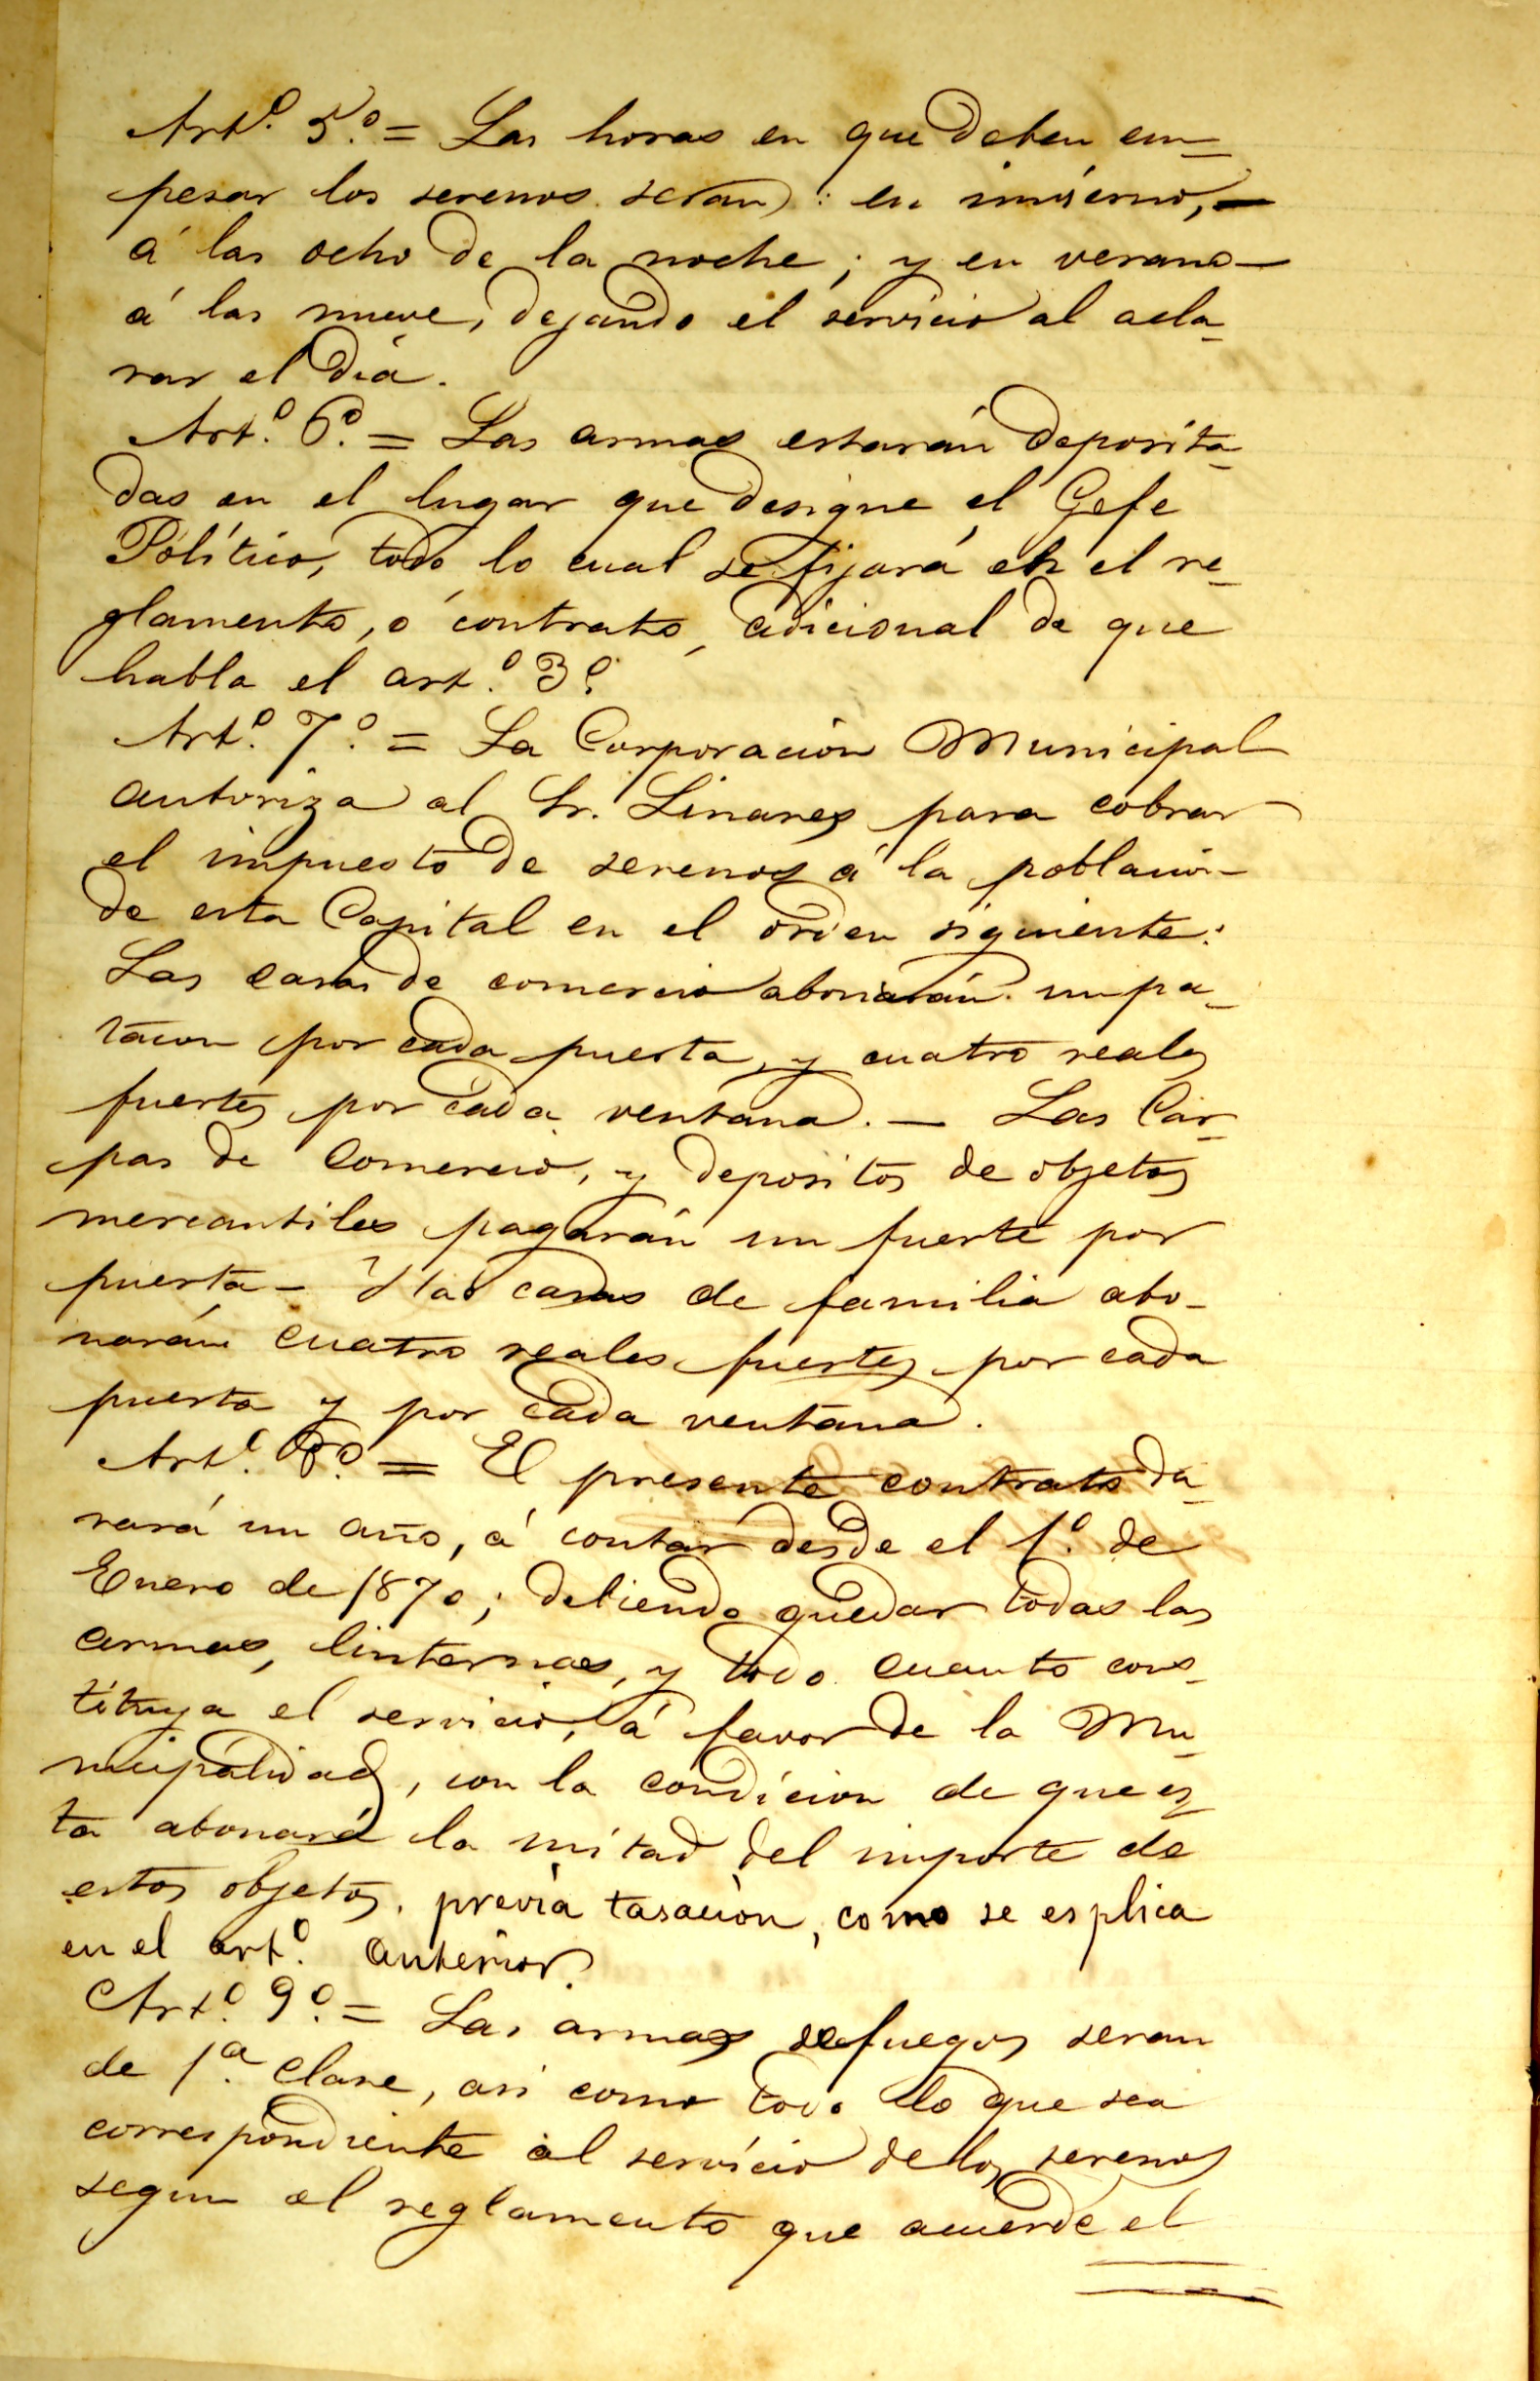 Art.º 5.º = Las horas en que deben em-
pesar los serenos seran: en invierno, —
á las ocho de la noche; y en verano —
á las nueve, dejando el servicio al acla-
rar el dia.
Art.º 6.º = Las armas estarán deposita-
das en el lugar que designe el Gefe
Político, todo lo cual se fijará en el re-
glamento, ó contrato, adicional de que
habla el art.º 3.º
Art.º 7.º = La Corporación Municipal
autoriza al Sr. Linares para cobrar
el impuesto de serenos á la población
de esta Capital en el orden siguiente:
Las casas de comercio abonarán un pa-
tacon por cada puerta, y cuatro reales
fuertes por cada ventana. — Las Car-
pas de Comercio, y depositos de objetos
mercantiles pagarán un fuerte por
puerta — Y las casas de familia abo-
narán cuatro reales fuertes por cada
puerta y por cada ventana.
Art.º 8.º = El presente contrato du-
rará un año, á contar desde el 1.º de
Enero de 1870; debiendo quedar todas las
armas, linternas, y todo cuanto cons-
tituya el servicio, á favor de la Mu-
nicipalidad, con la condicion de que es
ta abonará la mitad del importe de
estos objetos, previa tasación, como se esplica
en el art.º anterior.
Art.º 9.º = Las armas de fuegos seran
de 1.ª clase, asi como todo lo que sea
correspondiente al servicio de los serenos
segun el reglamento que acuerde el